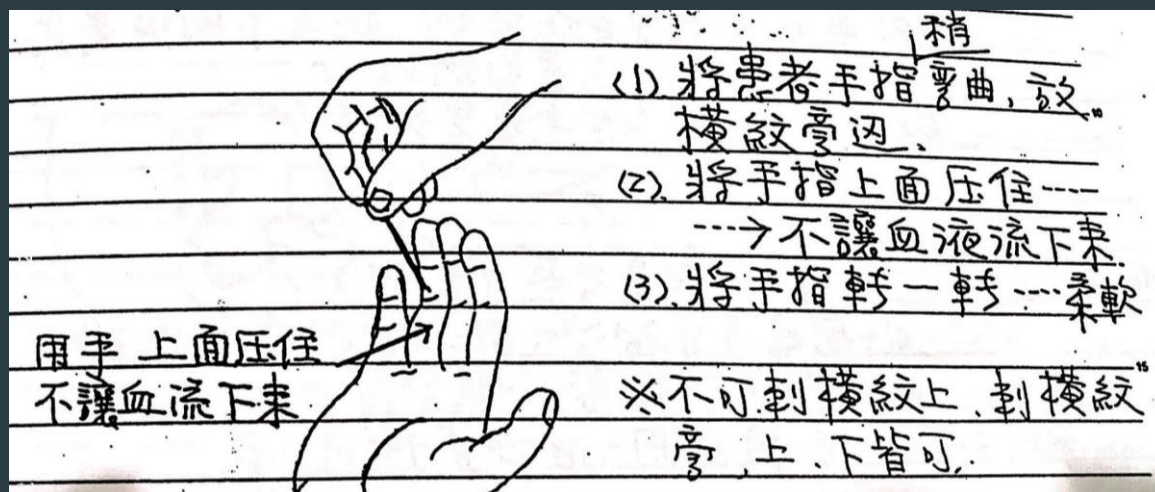 稍
(1). 將患者手指彎曲, 放
橫紋旁边.
(2). 將手指上面压住----
---→ 不讓血液流下来.
(3). 將手指転一転----柔軟
用手上面压住
不讓血流下来.
※不可刺橫紋上, 刺橫紋
旁, 上、下皆可.